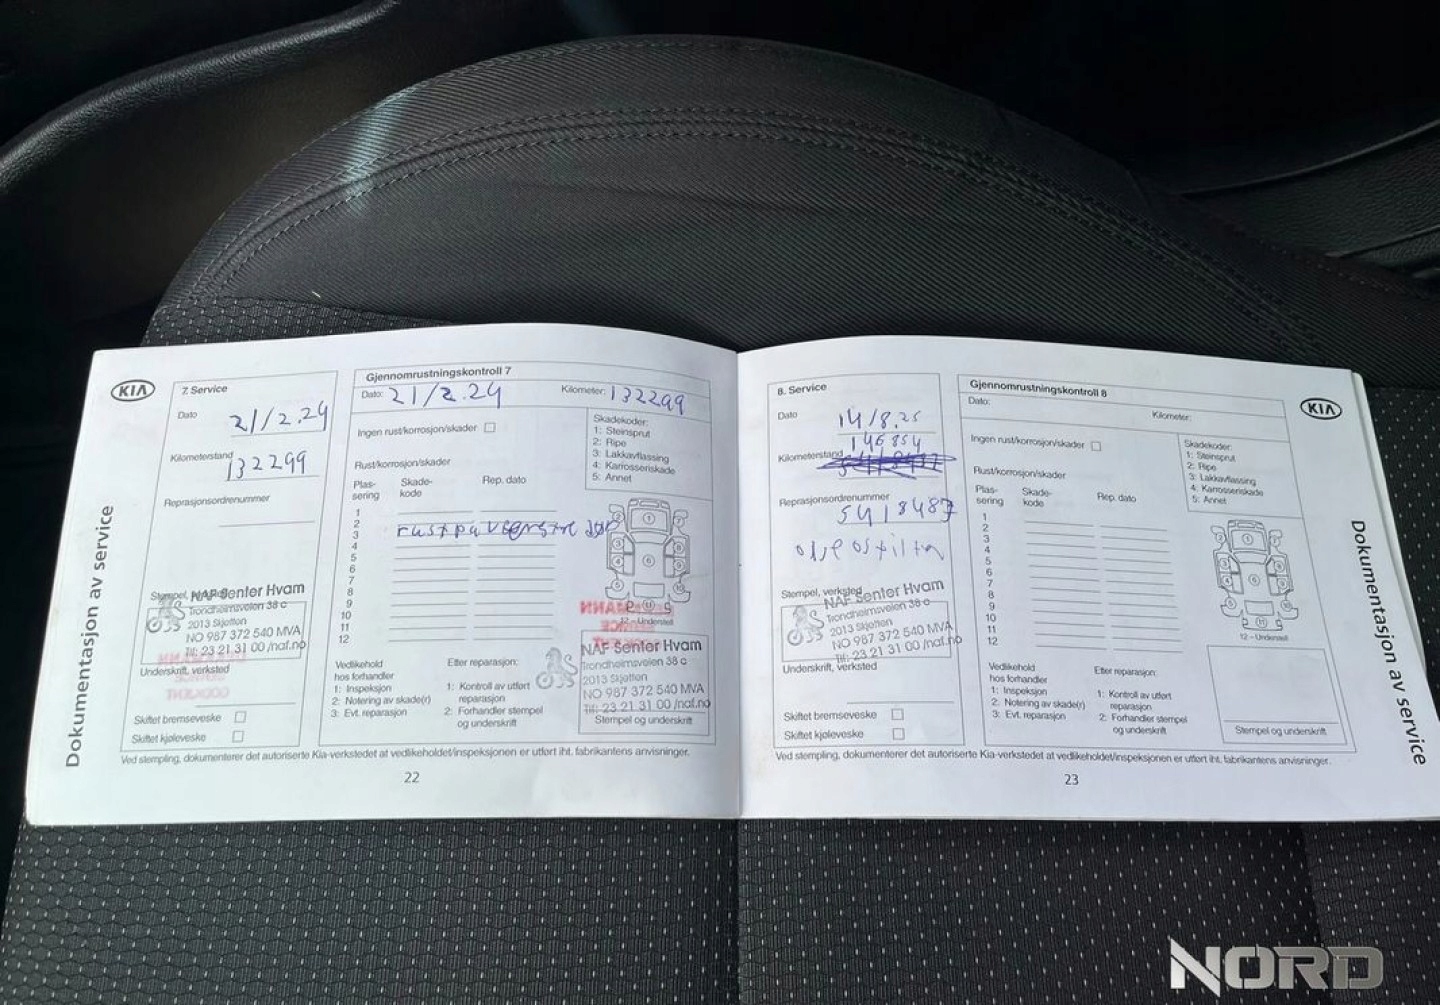 KIA
7. Service
Dato
21/2.24
Kilometerstand
132299
Reprasjonsordrenummer
Stempel,
NAF Senter Hvam
Trondheimsveien 38 c
2013 Skjetten
NO 987 372 540 MVA
Tlf: 23 21 31 00 /naf.no
Underskrift, verksted
Skiftet bremsevæske
Skiftet kjølevæske
Dokumentasjon av service
Gjennomrustningskontroll 7
Dato: 21/2.24
Kilometer: 132299
Ingen rust/korrosjon/skader
Skadekoder:
1: Steinsprut
2: Ripe
3: Lakkavflassing
4: Karrosseriskade
5: Annet
Rust/korrosjon/skader
Plas-
sering
Skade-
kode
Rep. dato
1
2
3 rust på venstre dør
4
5
6
7
8
9
10
11
12
12 – Understell
Vedlikehold
hos forhandler
1: Inspeksjon
2: Notering av skade(r)
3: Evt. reparasjon
Etter reparasjon:
1: Kontroll av utført
reparasjon
2: Forhandler stempel
og underskrift
NAF Senter Hvam
Trondheimsveien 38 c
2013 Skjetten
NO 987 372 540 MVA
Tlf: 23 21 31 00 /naf.no
Stempel og underskrift
Ved stempling, dokumenterer det autoriserte Kia-verkstedet at vedlikeholdet/inspeksjonen er utført iht. fabrikantens anvisninger.
22
8. Service
Dato
14/8.25
146854
Kilometerstand
Reprasjonsordrenummer
5418487
olje os filter
Stempel, verksted
NAF Senter Hvam
Trondheimsveien 38 c
2013 Skjetten
NO 987 372 540 MVA
Tlf: 23 21 31 00 /naf.no
Underskrift, verksted
Skiftet bremsevæske
Skiftet kjølevæske
Gjennomrustningskontroll 8
Dato:
Kilometer:
Ingen rust/korrosjon/skader
Skadekoder:
1: Steinsprut
2: Ripe
3: Lakkavflassing
4: Karrosseriskade
5: Annet
Rust/korrosjon/skader
Plas-
sering
Skade-
kode
Rep. dato
1
2
3
4
5
6
7
8
9
10
11
12
12 – Understell
Vedlikehold
hos forhandler
1: Inspeksjon
2: Notering av skade(r)
3: Evt. reparasjon
Etter reparasjon:
1: Kontroll av utført
reparasjon
2: Forhandler stempel
og underskrift
Stempel og underskrift
Ved stempling, dokumenterer det autoriserte Kia-verkstedet at vedlikeholdet/inspeksjonen er utført iht. fabrikantens anvisninger.
23
KIA
Dokumentasjon av service
NORD